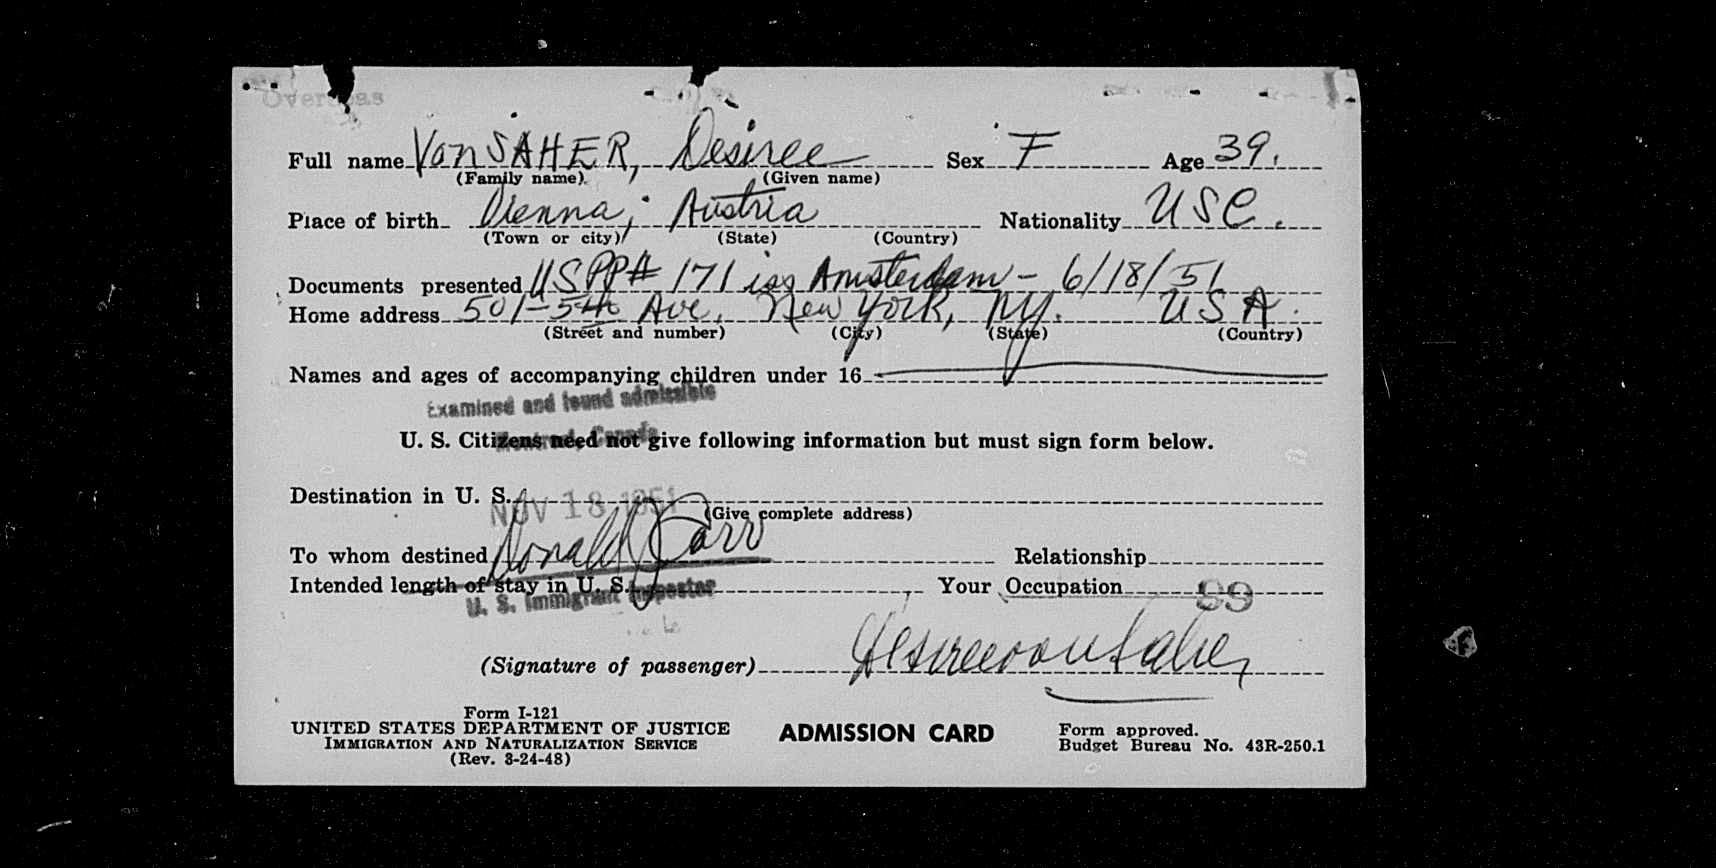 Overseas
Full name Von SAHER, Desiree Sex F Age 39.
(Family name) (Given name)
Place of birth Vienna, Austria Nationality USC.
(Town or city) (State) (Country)
Documents presented USPP# 171 iss Amsterdam - 6/18/51
Home address 501-5th Ave. New York, NY. USA.
(Street and number) (City) (State) (Country)
Names and ages of accompanying children under 16
Examined and found admissible
Montreal, Canada
U. S. Citizens need not give following information but must sign form below.
Destination in U. S.
NOV 18 1951
(Give complete address)
To whom destined Donald J Carr Relationship
Intended length of stay in U. S. Your Occupation 99
U. S. Immigrant Inspector
(Signature of passenger) Desiree von Saher
Form I-121
UNITED STATES DEPARTMENT OF JUSTICE ADMISSION CARD Form approved.
IMMIGRATION AND NATURALIZATION SERVICE Budget Bureau No. 43R-250.1
(Rev. 3-24-48)